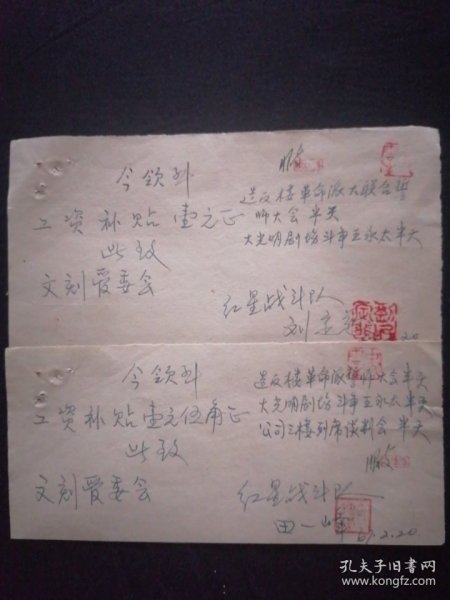 今领到
工资补贴壹元正
此致
文刻爱委会
造反楼革命派大联合誓
师大会 半天
大光明剧场斗争王永太半天
红星战斗队
刘
20
今领到
工资补贴壹元伍角正
此致
文刻爱委会
造反楼革命派誓师大会半天
大光明剧场斗争王永太半天
公司三楼列席谈判会 半天
红星战斗队
田一
67.2.20
孔夫子旧书网
www.kongfz.com